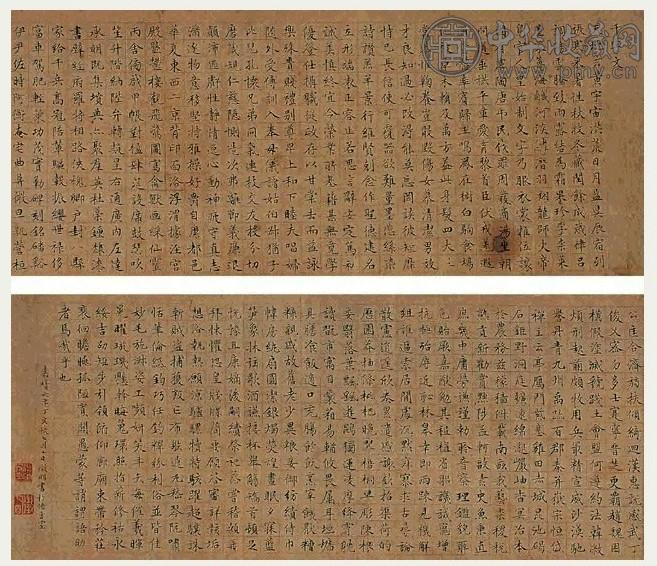 千字文
宇宙洪荒日月盈昃辰宿列
張寒來暑往秋收冬藏閏餘成歲律呂
騰致雨露結為霜
果珍李柰菜
海鹹河淡鱗潛羽翔龍師火帝
皇始制文字乃服衣裳推位讓
陶唐弔民伐罪周發商湯坐朝
問道垂拱平章愛育黎首臣伏戎羌遐
賓歸王鳴鳳在樹白駒食場
賴及萬方蓋此身髮四大五
鞠養豈敢毀傷女慕清潔男效
才良知過必改得能莫忘罔談彼短靡
恃己長信使可覆器欲難量墨悲絲染
詩讚羔羊景行維賢剋念作聖德建名
立形端表正容止若思言辭安定篤初
誠美慎終宜令榮業所基籍甚無竟學
優登仕攝職從政存以甘棠去而益詠
樂殊貴賤禮別尊卑上和下睦夫唱婦
隨外受傅訓入奉母儀諸姑伯叔猶子
比兒孔懷兄弟同氣連枝交友投分切
磨箴規仁慈隱惻造次弗離節義廉退
顛沛匪虧性靜情逸心動神疲守真志
滿逐物意移堅持雅操好爵自縻都邑
華夏東西二京背邙面洛浮渭據涇宮
殿盤鬱樓觀飛驚圖寫禽獸畫綵仙靈
丙舍傍啟甲帳對楹肆筵設席鼓瑟吹
笙升階納陛弁轉疑星右通廣內左達
承明既集墳典亦聚群英杜稾鍾隸漆
書壁經府羅將相路俠槐卿戶封八縣
家給千兵高冠陪輦驅轂振纓世祿侈
富車駕肥輕策功茂實勒碑刻銘磻溪
伊尹佐時阿衡奄宅曲阜微旦孰營桓
公匡合濟弱扶傾綺迴漢惠說感武丁
俊乂密勿多士寔寧晉楚更霸趙魏困
橫假途滅虢踐土會盟何遵約法韓弊
煩刑起翦頗牧用兵最精宣威沙漠馳
譽丹青九州禹跡百郡秦并嶽宗恒岱
禪主云亭雁門紫塞雞田赤城昆池碣
石鉅野洞庭曠遠綿邈巖岫杳冥治本
於農務茲稼穡俶載南畝我藝黍稷稅
熟貢新勸賞黜陟孟軻敦素史魚秉直
庶幾中庸勞謙謹敕聆音察理鑒貌辨
色貽厥嘉猷勉其祗植省躬譏誡寵增
抗極殆辱近恥林皋幸即兩疏見機解
組誰逼索居閒處沉默寂寥求古尋論
散慮逍遙欣奏累遣慼謝歡招渠荷的
歷園莽抽條枇杷晚翠梧桐早彫陳根
委翳落葉飄颻遊鵾獨運凌摩絳霄耽
讀翫市寓目囊箱易輶攸畏屬耳垣牆
具膳飡飯適口充腸飽飫烹宰飢厭糟
糠親戚故舊老少異糧妾御績紡侍巾
帷房紈扇圓潔銀燭煒煌晝眠夕寐藍
筍象床絃歌酒讌接杯舉觴矯手頓足
悅豫且康嫡後嗣續祭祀蒸嘗稽顙再
拜悚懼恐惶牋牒簡要顧答審詳骸垢
想浴執熱願涼驢騾犢特駭躍超驤誅
斬賊盜捕獲叛亡布射遼丸嵇琴阮嘯
恬筆倫紙鈞巧任釣釋紛利俗並皆佳
妙毛施淑姿工顰妍笑年矢每催羲暉
晃曜璇璣懸斡晦魄環照指薪修祜永
綏吉劭矩步引領俯仰廊廟束帶矜莊
徘徊瞻眺孤陋寡聞愚蒙等誚謂語助
者焉哉乎也
中华收藏网